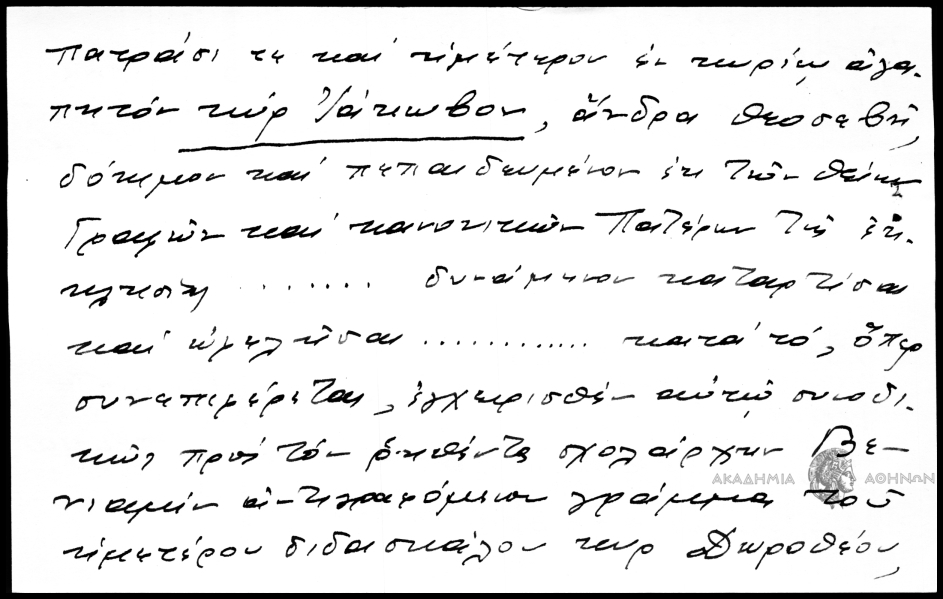 πατράσι τε καί ἡμέτερον ἐν κυρίῳ ἀγα-
πητόν κύρ Ἰάκωβον, ἄνδρα θεοσεβῆ,
δόκιμον καί πεπαιδευμένον ἐκ τῶν θείων
Γραφῶν καί κανονικῶν Πατέρων τῆς ἐκ-
κλησίας ........ δυνάμενον καταρτίσαι
καί ὠφελῆσαι ............ κατά τό, ὅπερ
συνεπιφέρεται, ἐγχειρισθέν αὐτῷ συνοδι-
κῶς πρός τόν ῥηθέντα σχολάρχην Βε-
νιαμίν ἀντιγραφόμενον γράμμα τοῦ
ἡμετέρου διδασκάλου κυρ Δωροθέου,
ΑΚΑΔΗΜΙΑ ΑΘΗΝΩΝ